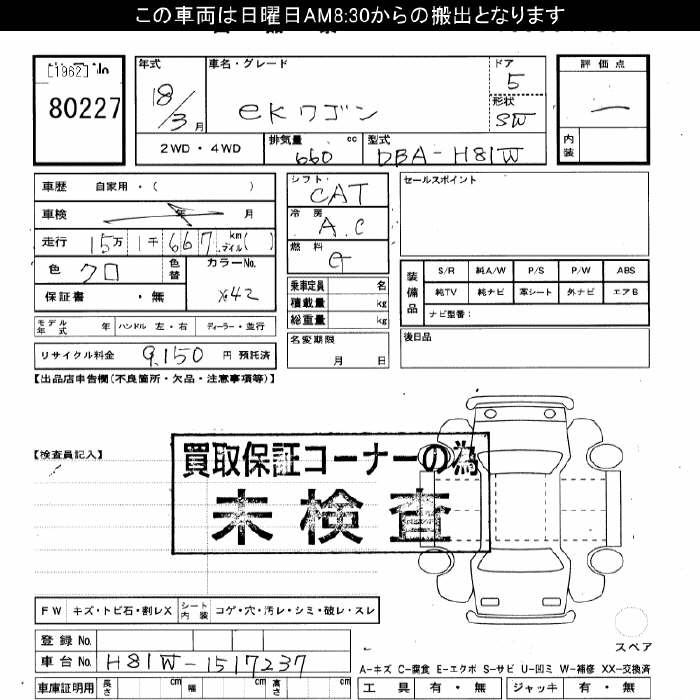 この車両は日曜日AM8:30からの搬出となります
[1962] No
80227
年式 車名・グレード ドア 評価点
18/3月 eKワゴン 5
形状 SW
2WD・4WD 排気量 660 cc 型式 DBA-H81W 内装
車歴 自家用・( ) シフト CAT セールスポイント
車検 年 月 冷房 A.C
走行 15万1千667 km マイル( ) 燃料 G
色 クロ 色替 カラーNo. X42
保証書 ・無
乗車定員 名
積載量 kg
総重量 kg
装備品 S/R 純A/W P/S P/W ABS
純TV 純ナビ 革シート 外ナビ エアB
ナビ型番:
モデル年式 年 ハンドル 左・右 ディーラー・並行
名変期限 月 日
後日品
リサイクル料金 9,150 円 預託済
【出品店申告欄(不良箇所・欠品・注意事項等)】
【検査員記入】
買取保証コーナーの為
未検査
FW キズ・トビ石・割レX シート内装 コゲ・穴・汚レ・シミ・破レ・スレ
スペア
登録No.
車台No. H81W-1517237
A-キズ C-腐食 E-エクボ S-サビ U-凹ミ W-補修 XX-交換済
車庫証明用 長さ cm 幅 cm 高さ cm
工具 有・無 ジャッキ 有・無